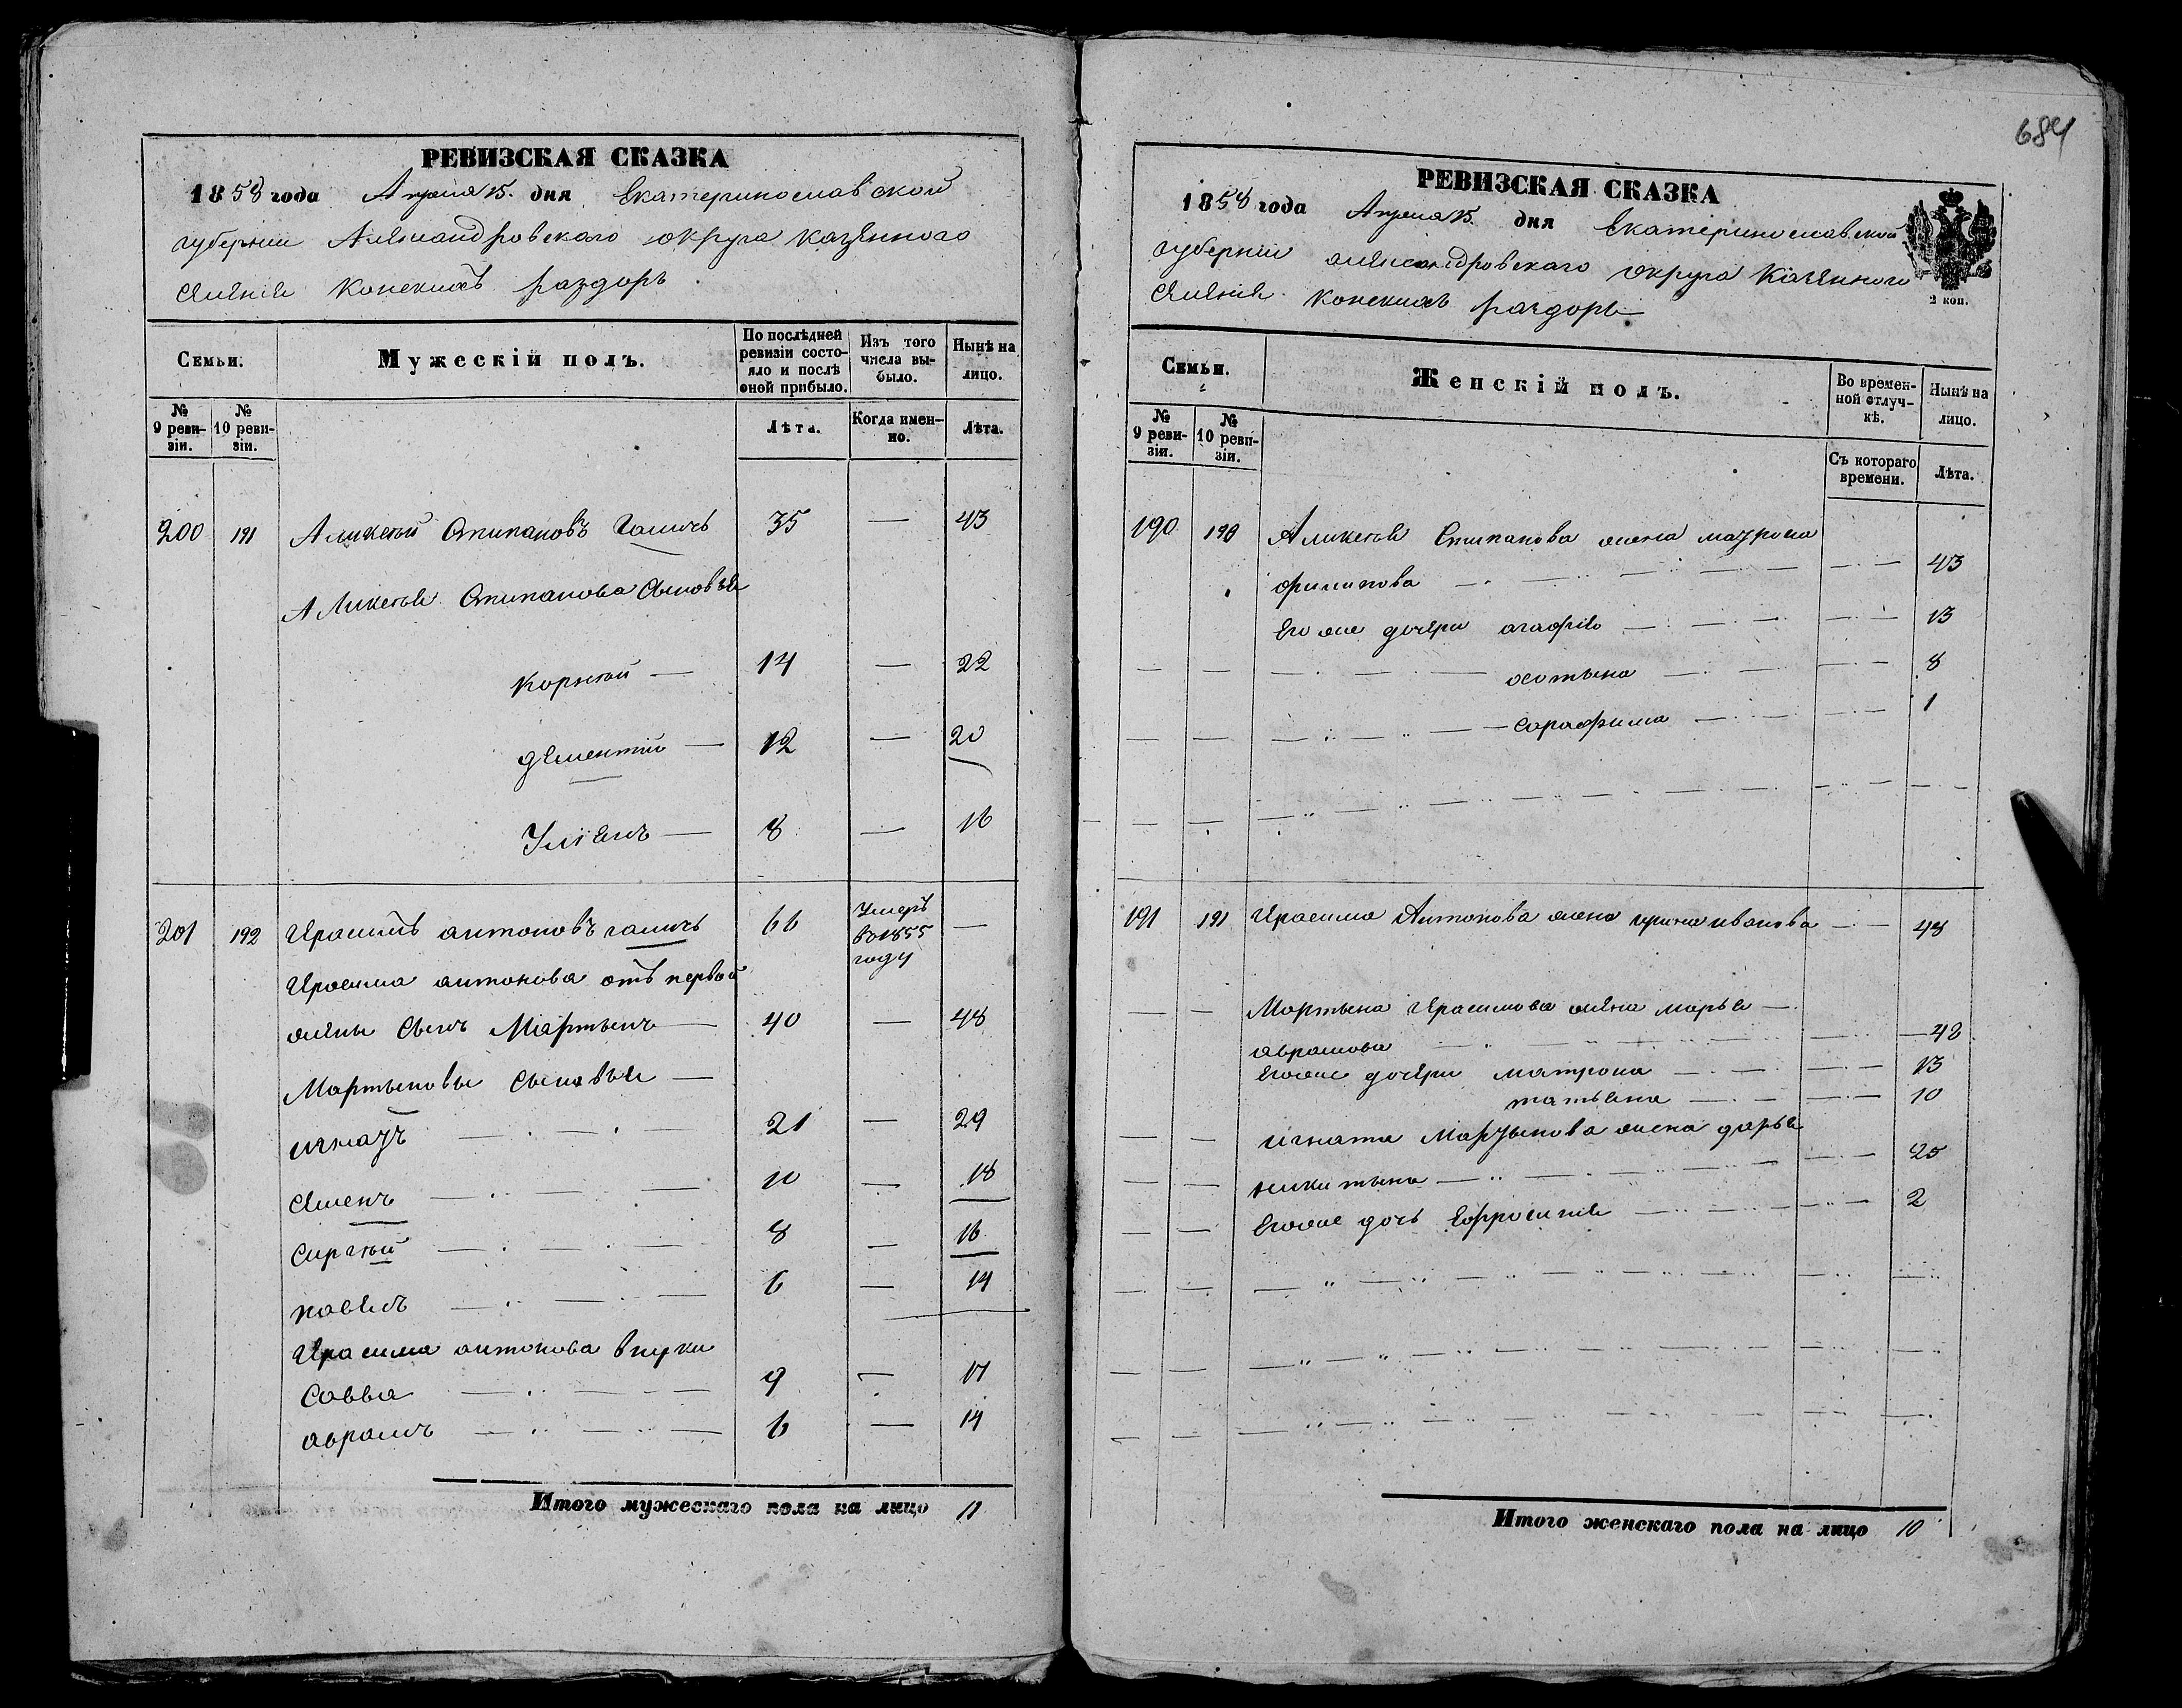 РЕВИЗСКАЯ СКАЗКА
1858 года Апреля 15. дня Екатеринославской
губернии Александровского округа казенного
селения Конскихъ раздоръ
Семьи.
Мужескій полъ.
По послѣдней ревизіи состояло и послѣ оной прибыло.
Изъ того числа выбыло.
Нынѣ на лицо.
№ 9 ревизіи.
№ 10 ревизіи.
Лѣта.
Когда именно.
Лѣта.
200 191 Аликсѣй Стипановъ Галичъ 35 — 43
Аликсѣя Стипанова Сыновья
Корнѣй — 14 — 22
дементий — 12 — 20
Улiянъ — 8 — 16
201 192 Ирасимъ антоновъ галичъ 66 Умеръ —
в 1855
году
Ирасима антонова отъ первой
жены Сынъ Мартынъ — 40 — 48
Мартыновы Сыновья —
игнатъ 21 — 29
Семенъ 10 — 18
Сиргѣй 8 — 16
павелъ 6 — 14
Ирасима антонова внуки
Савва 9 — 17
аврамъ 6 — 14
Итого мужескаго пола на лицо 11
684
РЕВИЗСКАЯ СКАЗКА
1858 года Апреля 15. дня Екатеринославской
губернии александровскаго округа Казенного
Селения Конскихъ раздоръ
2 коп.
Семьи.
Женскій полъ.
Во временной отлучкѣ.
Нынѣ на лицо.
№ 9 ревизіи.
№ 10 ревизіи.
Съ котораго времени.
Лѣта.
190 190 Аликсѣя Стипанова жена
филипова — 43
Его же дочери агафiя — 13
— 8
Сарафима — 1
191 191 Ирасима Антонова жена ирина иванова — 48
Мартына Ирасимова жена марья —
аврамова — 48
Егоже дочери матрона — 13
татьяна — 10
игната Мартынова жена дарья
никитына — 25
Егоже дочь Ефросиния — 2
Итого женскаго пола на лицо 10